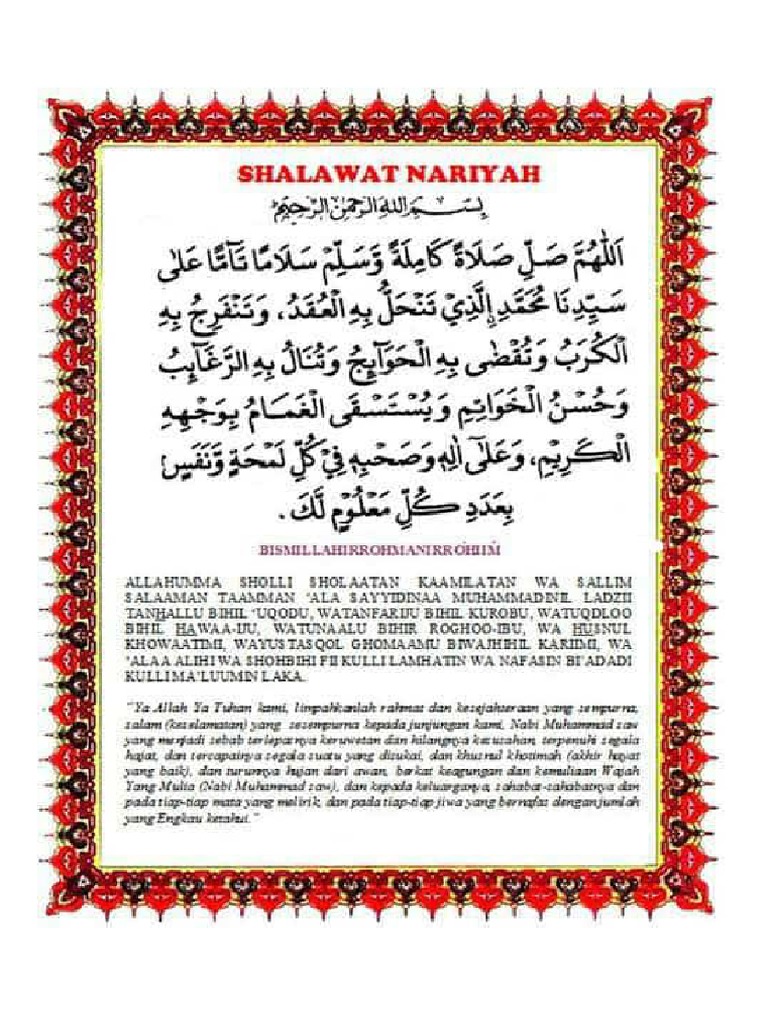 SHALAWAT NARIYAH
بِسْمِ اللهِ الرَّحْمٰنِ الرَّحِيْمِ
اَللّٰهُمَّ صَلِّ صَلَاةً كَامِلَةً وَّسَلِّمْ سَلَامًا تَآمًّا عَلٰى
سَيِّدِنَا مُحَمَّدِ ٱلَّذِيْ تَنْحَلُّ بِهِ الْعُقَدُ، وَتَنْفَرِجُ بِهِ
الْكُرَبُ وَتُقْضٰى بِهِ الْحَوَآئِجُ وَتُنَالُ بِهِ الرَّغَآئِبُ
وَحُسْنُ الْخَوَاتِمِ وَيُسْتَسْقَى الْغَمَامُ بِوَجْهِهِ
الْكَرِيْمِ، وَعَلٰٓى اٰلِهٖ وَصَحْبِهٖ فِيْ كُلِّ لَمْحَةٍ وَّنَفَسٍ
بِعَدَدِ كُلِّ مَعْلُوْمٍ لَّكَ.
BISMILLAHIRROHMANIRROHIIM
ALLAHUMMA SHOLLI SHOLAATAN KAAMILATAN WA SALLIM
SALAAMAN TAAMMAN ‘ALA SAYYIDINAA MUHAMMADINIL LADZII
TANHALLU BIHIL ‘UQODU, WATANFARIJU BIHIL KUROBU, WATUQDLOO
BIHIL HAWAA-IJU, WATUNAALU BIHIR ROGHOO-IBU, WA HUSNUL
KHOWAATIMI, WAYUSTASQOL GHOMAAMU BIWAJHIHIL KARIIMI, WA
‘ALAA ALIHI WA SHOHBIHI FII KULLI LAMHATIN WA NAFASIN BI’ADADI
KULLI MA’LUUMIN LAKA.
“Ya Allah Ya Tuhan kami, limpahkanlah rahmat dan kesejahteraan yang sempurna,
salam (keselamatan) yang sesempurna kepada junjungan kami, Nabi Muhammad saw
yang menjadi sebab terlepasnya keruwetan dan hilangnya kesusahan, terpenuhi segala
hajat, dan tercapainya segala suatu yang disukai, dan khusnul khotimah (akhir hayat
yang baik), dan turunnya hujan dari awan, berkat keagungan dan kemuliaan Wajah
Yang Mulia (Nabi Muhammad saw), dan kepada keluarganya, sahabat-sahabatnya dan
pada tiap-tiap mata yang melirik, dan pada tiap-tiap jiwa yang bernafas dengan jumlah
yang Engkau ketahui.”